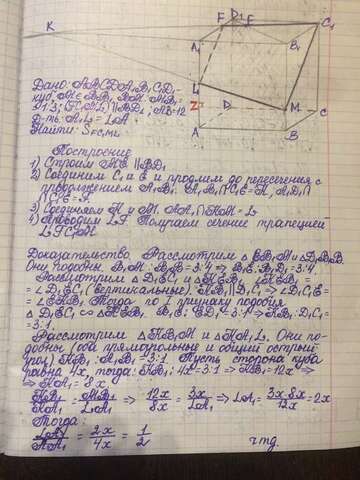 K
F D₁ E C₁
A₁ B₁
L
Z D M C
A B
Дано: ABCDA₁B₁C₁D₁-
куб M ∈ BB₁, BM : MB₁=
=1:3; (FC₁M) ∥ BD₁; AB=12
Д-ть: A₁L = LA
Найти: S
Построение
1) Строим ME ∥ BD₁
2) Соединим C₁ и E и продлим до пересечения с
продолжением A₁B₁. A₁B₁ ∩ C₁E = K, A₁D₁ ∩
∩ C₁E = F.
3) Соединяем K и M. AA₁ ∩ KM = L
4) Проводим LF. Получаем сечение трапецией
LFC₁M
Доказательство. Рассмотрим △ EB₁M и △ D₁B₁B.
Они подобны. B₁M : B₁B = 3:4 ⇒ B₁E : B₁D₁ = 3:4.
Рассмотрим △ D₁EC₁ и △ KEB₁. ∠KEB₁ =
= ∠D₁EC₁ (вертикальные). KB₁ ∥ D₁C₁ ⇒ ∠D₁C₁E =
= ∠EKB₁. Тогда по I признаку подобия
△ D₁EC₁ ∾ △ KEB₁. B₁E : ED₁ = 3:1 ⇒ KB₁ : D₁C₁ =
= 3:1.
Рассмотрим △ KB₁M и △ KA₁L. Они по-
добны (оба прямоугольные и общий острый
угол) KB₁ : A₁B₁ = 3:1 Пусть сторона куба
равна 4x, тогда: KB₁ : 4x = 3:1 ⇒ KB₁ = 12x ⇒
⇒ KA₁ = 8x
KB₁/KA₁ = MB₁/LA₁ ⇒ 12x/8x = 3x/LA₁ ⇒ LA₁ = 3x·8x/12x = 2x
Тогда:
LA₁/AA₁ = 2x/4x = 1/2 чтд.